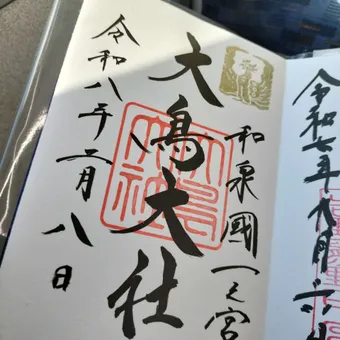 令和七年九月
和泉國一之宮
大鳥大社
大鳥大社
令和八年二月八日